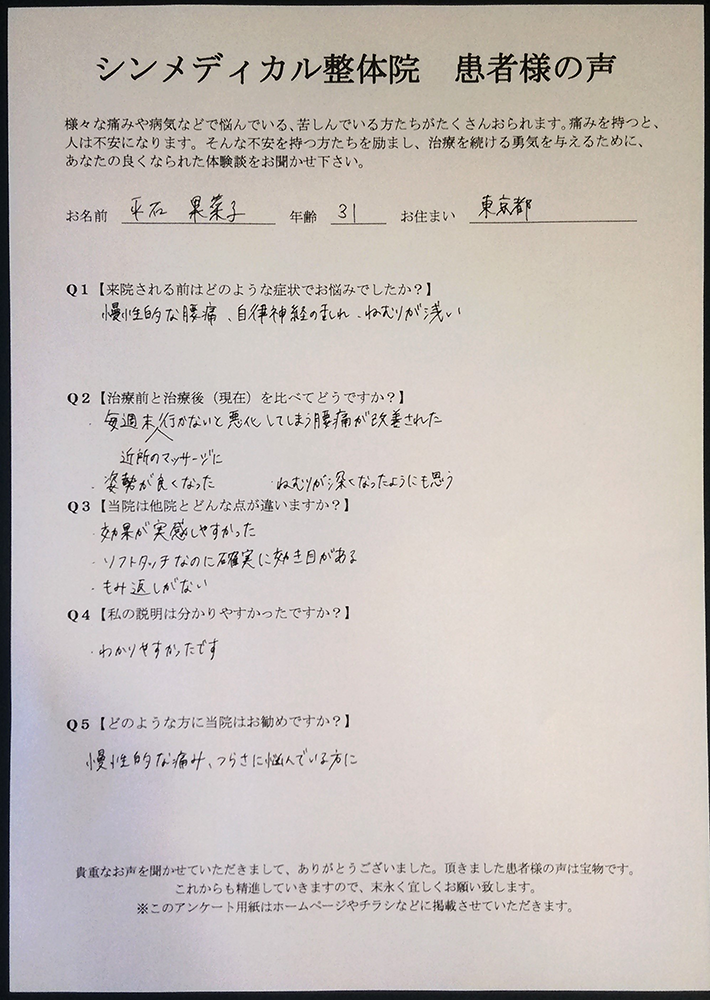 シンメディカル整体院　患者様の声
様々な痛みや病気などで悩んでいる、苦しんでいる方たちがたくさんおられます。痛みを持つと、
人は不安になります。そんな不安を持つ方たちを励まし、治療を続ける勇気を与えるために、
あなたの良くなられた体験談をお聞かせ下さい。
お名前 平石 果菜子 年齢 31 お住まい 東京都
Q1【来院される前はどのような症状でお悩みでしたか？】
慢性的な腰痛、自律神経の乱れ、ねむりが浅い
Q2【治療前と治療後（現在）を比べてどうですか？】
・毎週末行かないと悪化してしまう腰痛が改善された
近所のマッサージに
・姿勢が良くなった ・ねむりが深くなったようにも思う
Q3【当院は他院とどんな点が違いますか？】
・効果が実感しやすかった
・ソフトタッチなのに確実に効き目がある
・もみ返しがない
Q4【私の説明は分かりやすかったですか？】
・わかりやすかったです
Q5【どのような方に当院はお勧めですか？】
慢性的な痛み、つらさに悩んでいる方に
貴重なお声を聞かせていただきまして、ありがとうございました。頂きました患者様の声は宝物です。
これからも精進していきますので、末永く宜しくお願い致します。
※このアンケート用紙はホームページやチラシなどに掲載させていただきます。